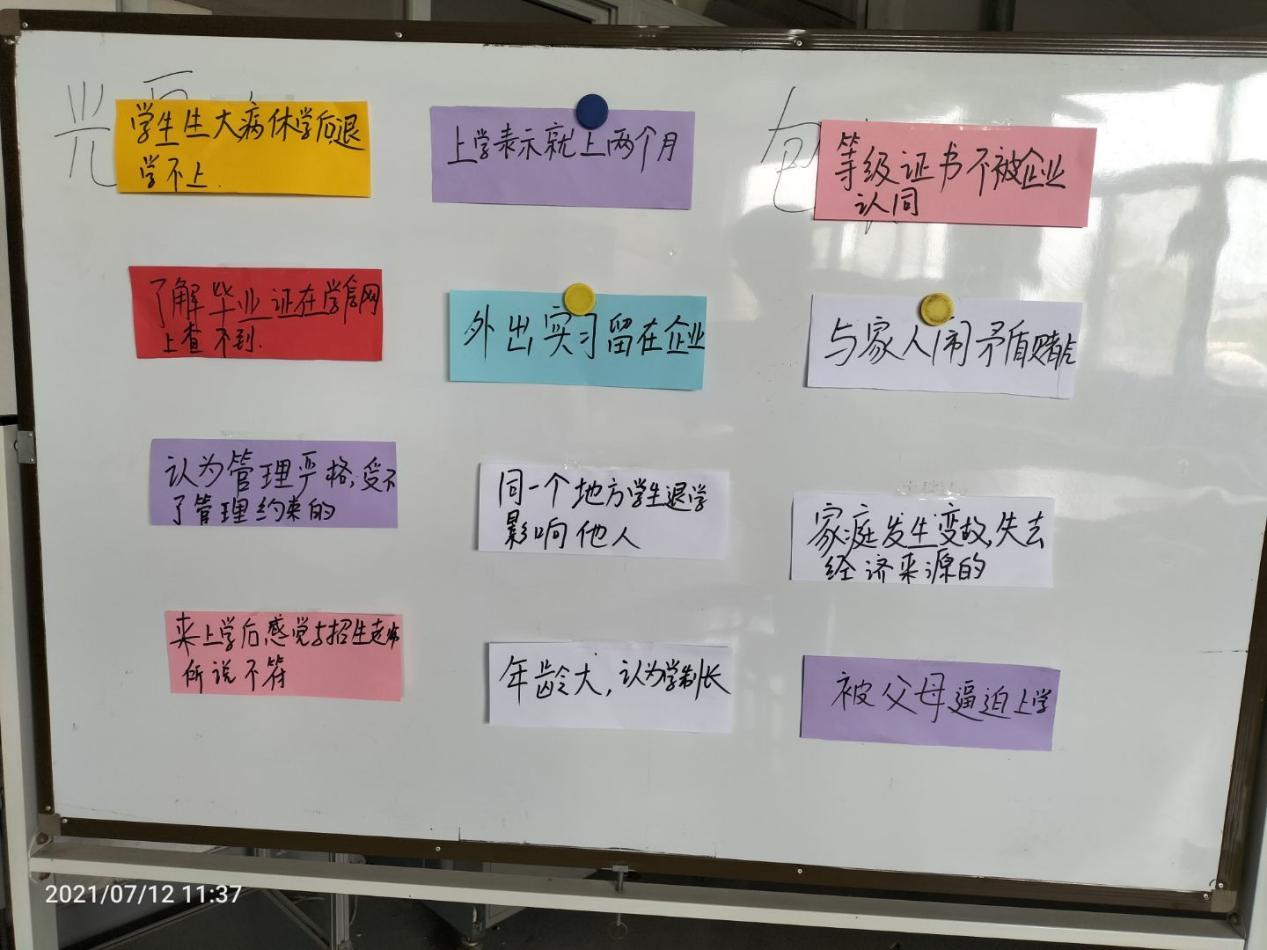 学生生大病休学后退
学不上.
上学表示就上两个月
等级证书不被企业
认同
了解毕业证在学信网
上查不到.
外出实习留在企业
与家人闹矛盾赌气
认为管理严格,受不
了管理约束的
同一个地方学生退学
影响他人
家庭发生变故,失去
经济来源的
来上学后感觉与招生
所说不符
年龄大,认为学制长
被父母逼迫上学
2021/07/12 11:37